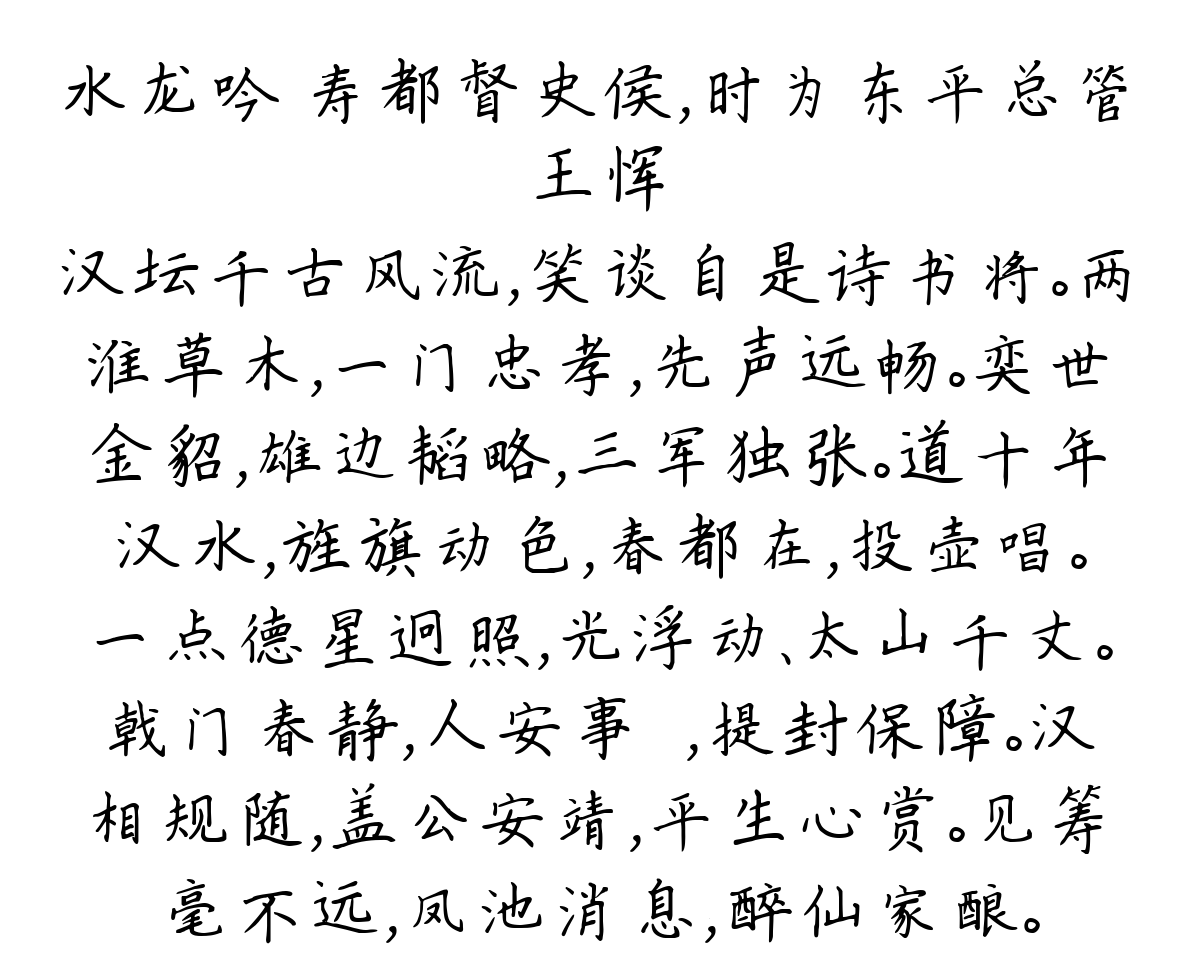 水龙吟 寿都督史侯,时为东平总管
王恽
汉坛千古风流,笑谈自是诗书将。两
淮草木,一门忠孝,先声远畅。奕世
金貂,雄边韬略,三军独张。道十年
汉水,旌旗动色,春都在,投壶唱。
一点德星迥照,光浮动、太山千丈。
戟门春静,人安事 ,提封保障。汉
相规随,盖公安靖,平生心赏。见筹
毫不远,凤池消息,醉仙家酿。